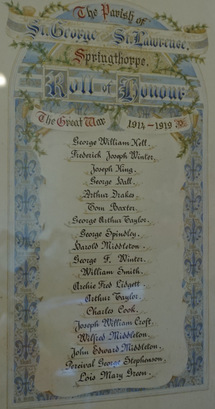 The Parish of
St. George and St. Lawrence,
Springthorpe.
Roll of Honour
The Great War 1914-1919
George William Kell.
Frederick Joseph Winter.
Joseph King.
George Hall.
Arthur Drakes.
Tom Baxter.
George Arthur Taylor.
George Spindley.
Harold Middleton.
George F. Winter.
William Smith.
Archie Fred Lidgett.
Arthur Taylor.
Charles Cook.
Joseph William Croft.
Wilfred Middleton.
John Edward Middleton.
Percival George Stephenson.
Lois Mary Green.